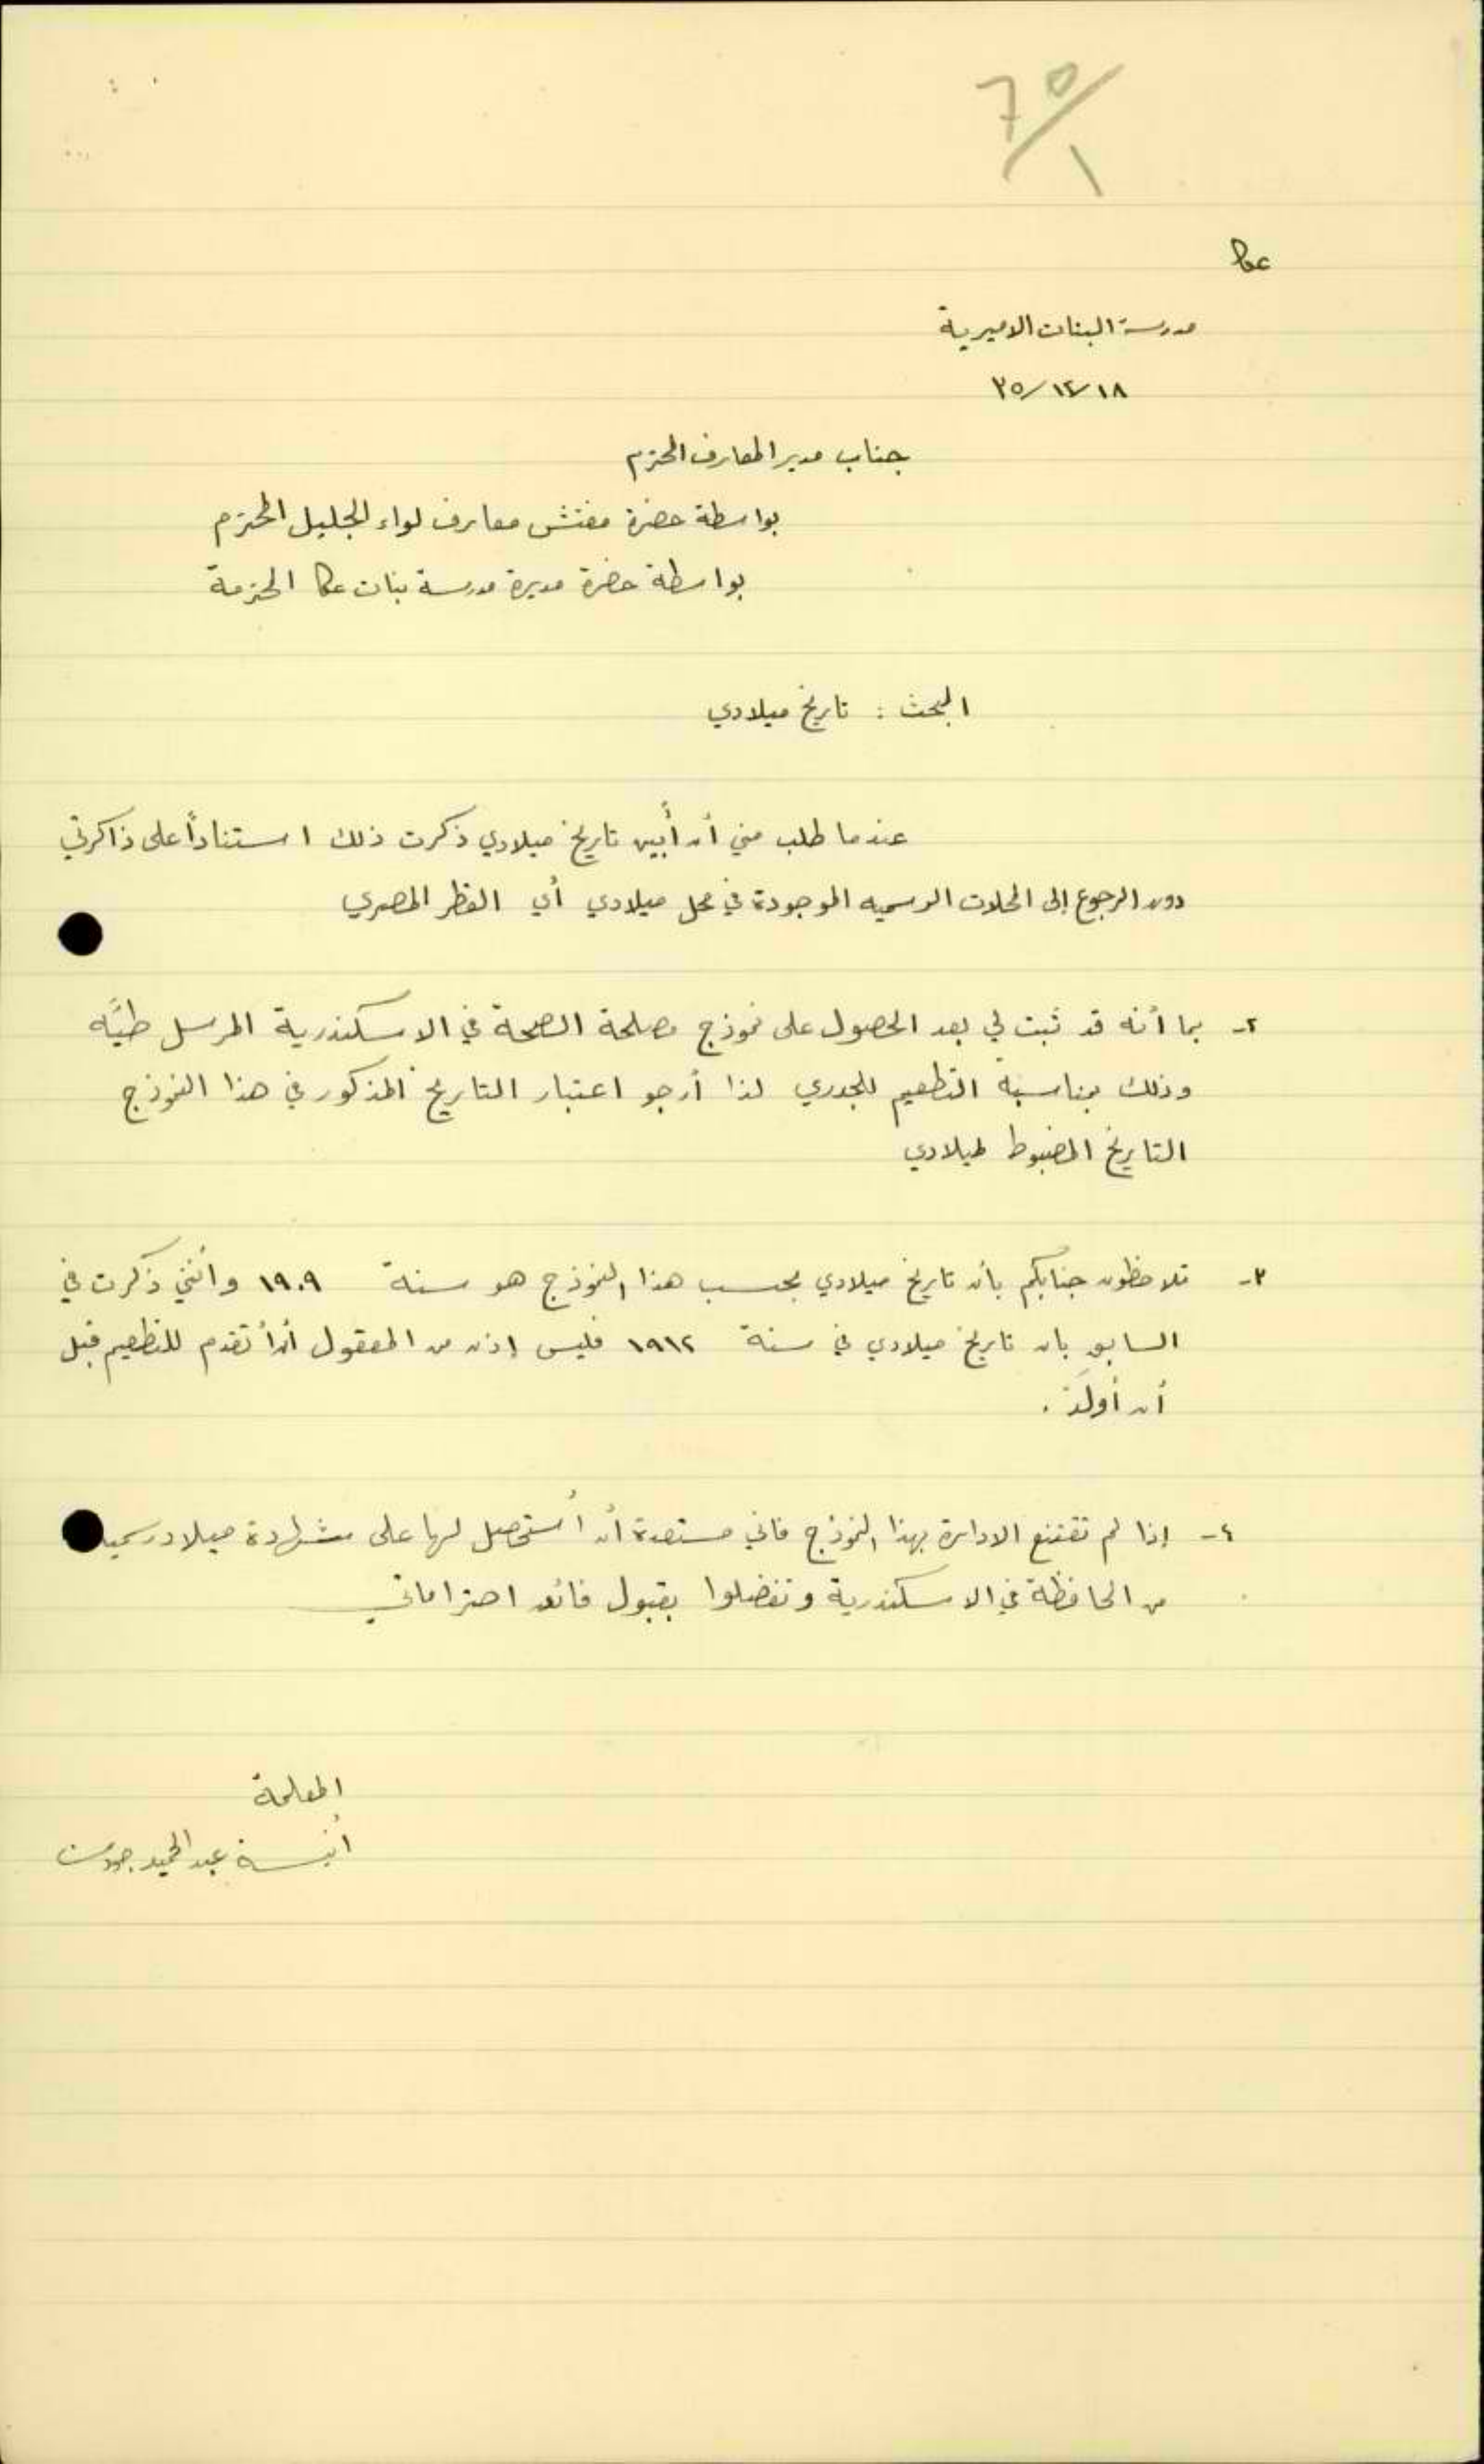 عكا
مدرسة البنات الاميرية
١٨/١٢/٣٥
جناب مدير المعارف المحترم
بواسطة حضرة مفتش معارف لواء الجليل المحترم
بواسطة حضرة مديرة مدرسة بنات عكا المحترمة
البحث : تاريخ ميلادي
عندما طلب مني أن أبين تاريخ ميلادي ذكرت ذلك استناداً على ذاكرتي
دون الرجوع إلى المحلات الرسميه الموجودة في محل ميلادي أي القطر المصري
٢- بما أنه قد ثبت لي بعد الحصول على نموذج مصلحة الصحة في الاسكندرية المرسل طيَّه
وذلك بمناسبة التطعيم للجدري لذا أرجو اعتبار التاريخ المذكور في هذا النموذج
التاريخ المضبوط لميلادي
٣- تلاحظون جنابكم بأن تاريخ ميلادي بحسب هذا النموذج هو سنة ١٩٠٩ وأنني ذكرت في
السابق بان تاريخ ميلادي في سنة ١٩١٢ فليس إذن من المعقول أن أتقدم للتطعيم قبل
أن أولَد .
٤- إذا لم تقتنع الادارة بهذا النموذج فاني مستعدة أن أستحصل لها على شهادة ميلاد رسمية
من المحافظة في الاسكندرية وتفضلوا بقبول فائق احتراماتي
المعلمة
أنيسة عبد الحميد جودت